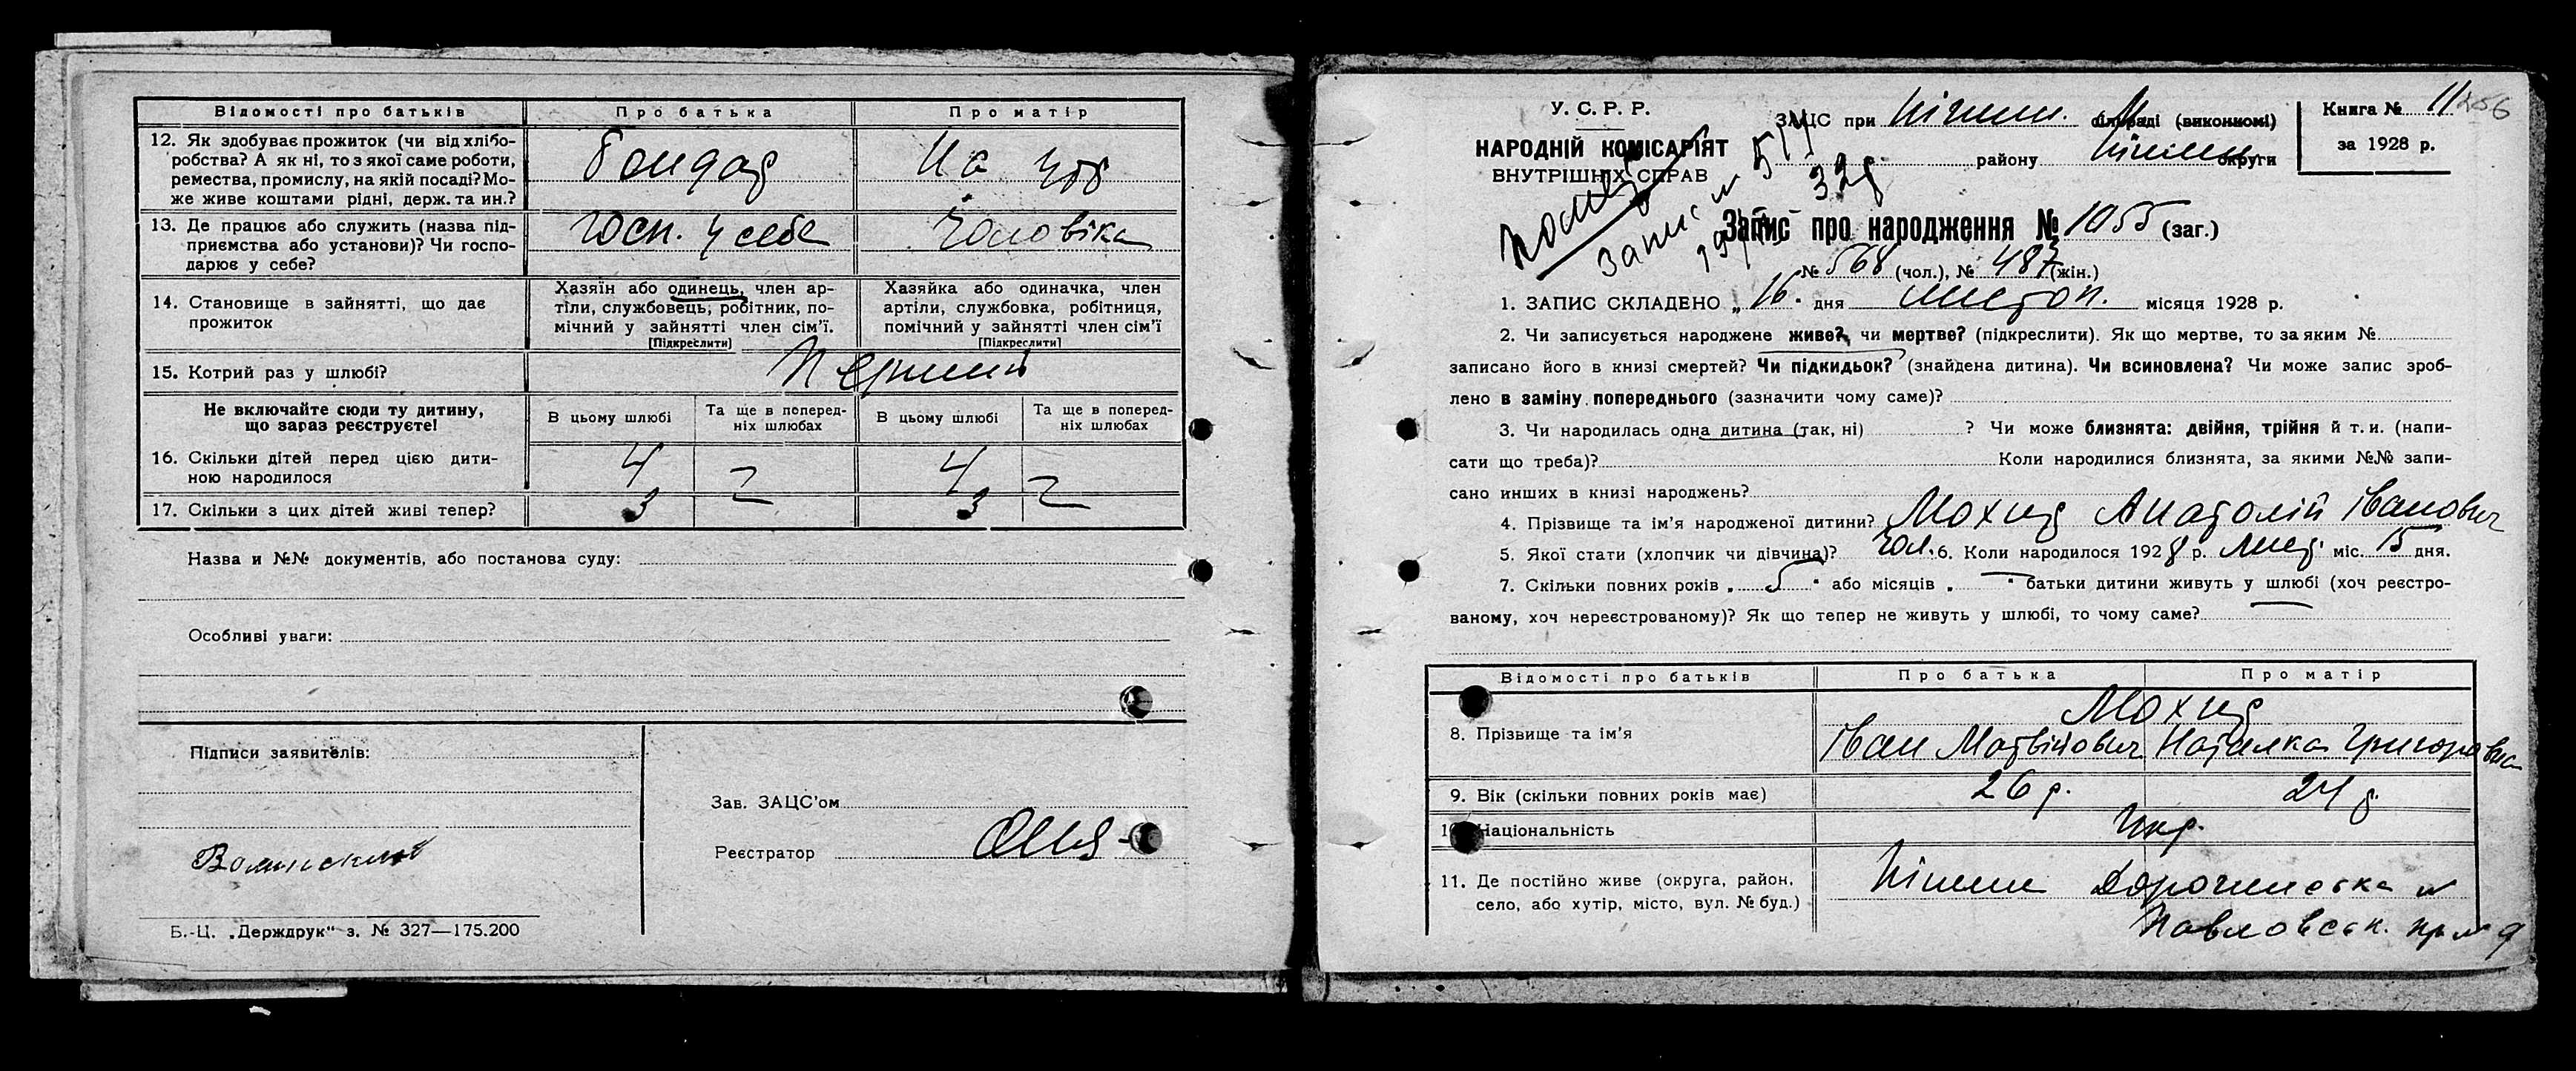 Відомості про батьків
Про батька
Про матір
12. Як здобуває прожиток (чи від хлібо-
робства? А як ні, то з якої саме роботи,
ремества, промислу, на якій посаді? Мо-
же живе коштами рідні, держ. та ин.?
Бондар
На утр
13. Де працює або служить (назва під-
приємства або установи)? Чи госпо-
дарює у себе?
госп. у себе
Чоловіка
14. Становище в зайнятті, що дає
прожиток
Хазяїн або одинець, член ар-
тіли, службовець, робітник, по-
мічний у зайнятті член сім'ї.
[Підкреслити]
Хазяйка або одиначка, член
артіли, службовка, робітниця,
помічний у зайнятті член сім'ї
[Підкреслити]
15. Котрий раз у шлюбі?
Перший
Не включайте сюди ту дитину,
що зараз реєструєте!
В цьому шлюбі
Та ще в поперед-
ніх шлюбах
В цьому шлюбі
Та ще в поперед-
ніх шлюбах
16. Скільки дітей перед цією дити-
ною народилося
4
4
17. Скільки з цих дітей живі тепер?
3
3
Назва и №№ документів, або постанова суду:
Особливі уваги:
Підписи заявителів:
Зав. ЗАЦС'ом
Реєстратор
Б.-Ц. „Держдрук" з. № 327—175.200
У. С. Р. Р.
НАРОДНІЙ КОМІСАРІЯТ
ВНУТРІШНІХ СПРАВ
ЗАЦС при Ніжин. М. сільраді (виконкомі)
району Ніжин. округи
Книга № 11
256
за 1928 р.
Запис №
Запис про народження № 1055 (заг.)
№ 568 (чол.), № 487 (жін.)
1. ЗАПИС СКЛАДЕНО „ 16. дня листоп. місяця 1928 р.
2. Чи записується народжене живе?, чи мертве? (підкреслити). Як що мертве, то за яким №
записано його в книзі смертей? Чи підкидьок? (знайдена дитина). Чи всиновлена? Чи може запис зроб-
лено в заміну попереднього (зазначити чому саме)?
3. Чи народилась одна дитина (так, ні) ? Чи може близнята: двійня, трійня й т. и. (напи-
сати що треба)? Коли народилися близнята, за якими №№ запи-
сано инших в книзі народжень?
4. Прізвище та ім'я народженої дитини? Мохир Анатолій Іванович
5. Якої стати (хлопчик чи дівчина)? Чол. 6. Коли народилося 1928 р. Лист. міс. 15 дня.
7. Скільки повних років „ 5 " або місяців „ — " батьки дитини живуть у шлюбі (хоч реєстро-
ваному, хоч нереєстрованому)? Як що тепер не живуть у шлюбі, то чому саме?
Відомості про батьків
Про батька
Про матір
8. Прізвище та ім'я
Мохир
Іван Матвійович
Наталка Григоровна
9. Вік (скільки повних років має)
26 р.
24 р.
10. Національність
Укр.
11. Де постійно живе (округа, район,
село, або хутір, місто, вул. № буд.)
Ніжин
Павловськ. пр. № 9